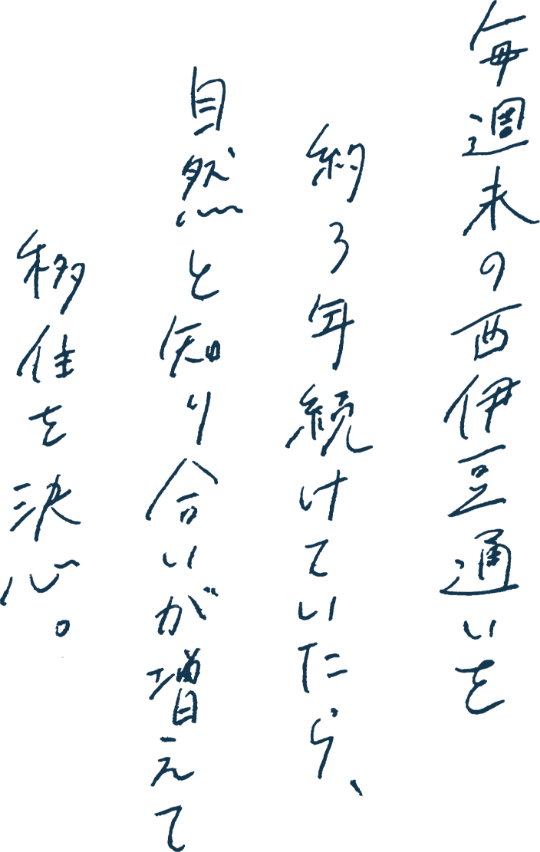 毎週末の西伊豆通いを
約3年続けていたら、
自然と知り合いが増えて
移住を決心。